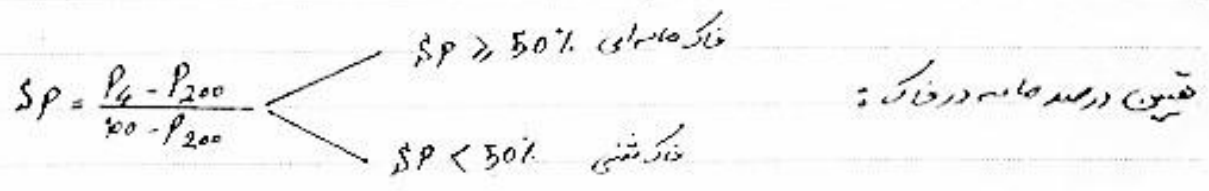 تعیین درصد ماسه در خاک :
SP = (P4 - P200) / (100 - P200)
SP ≥ 50% خاک ماسه‌ای
SP < 50% خاک شنی